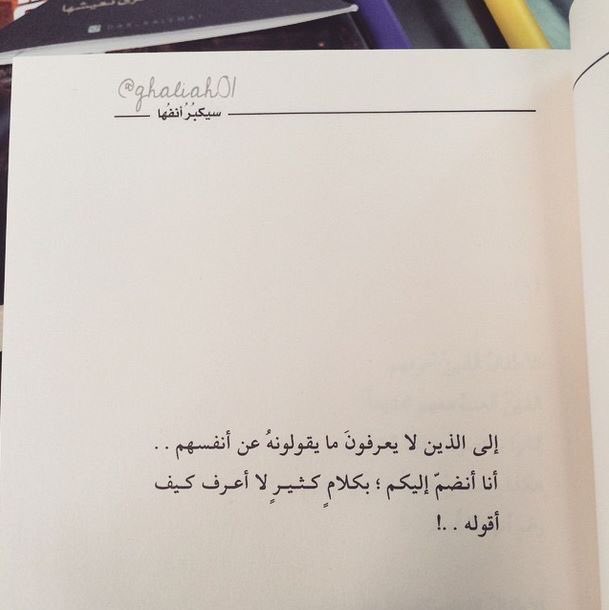 DAR_KALEMAT
@ghaliah01
سيكبُرُ أنفُها
إلى الذين لا يعرفونَ ما يقولونهُ عن أنفسهم . .
أنا أنضمّ إليكم ؛ بكلامٍ كـثـيـرٍ لا أعـرف كـيـف
أقوله . .!